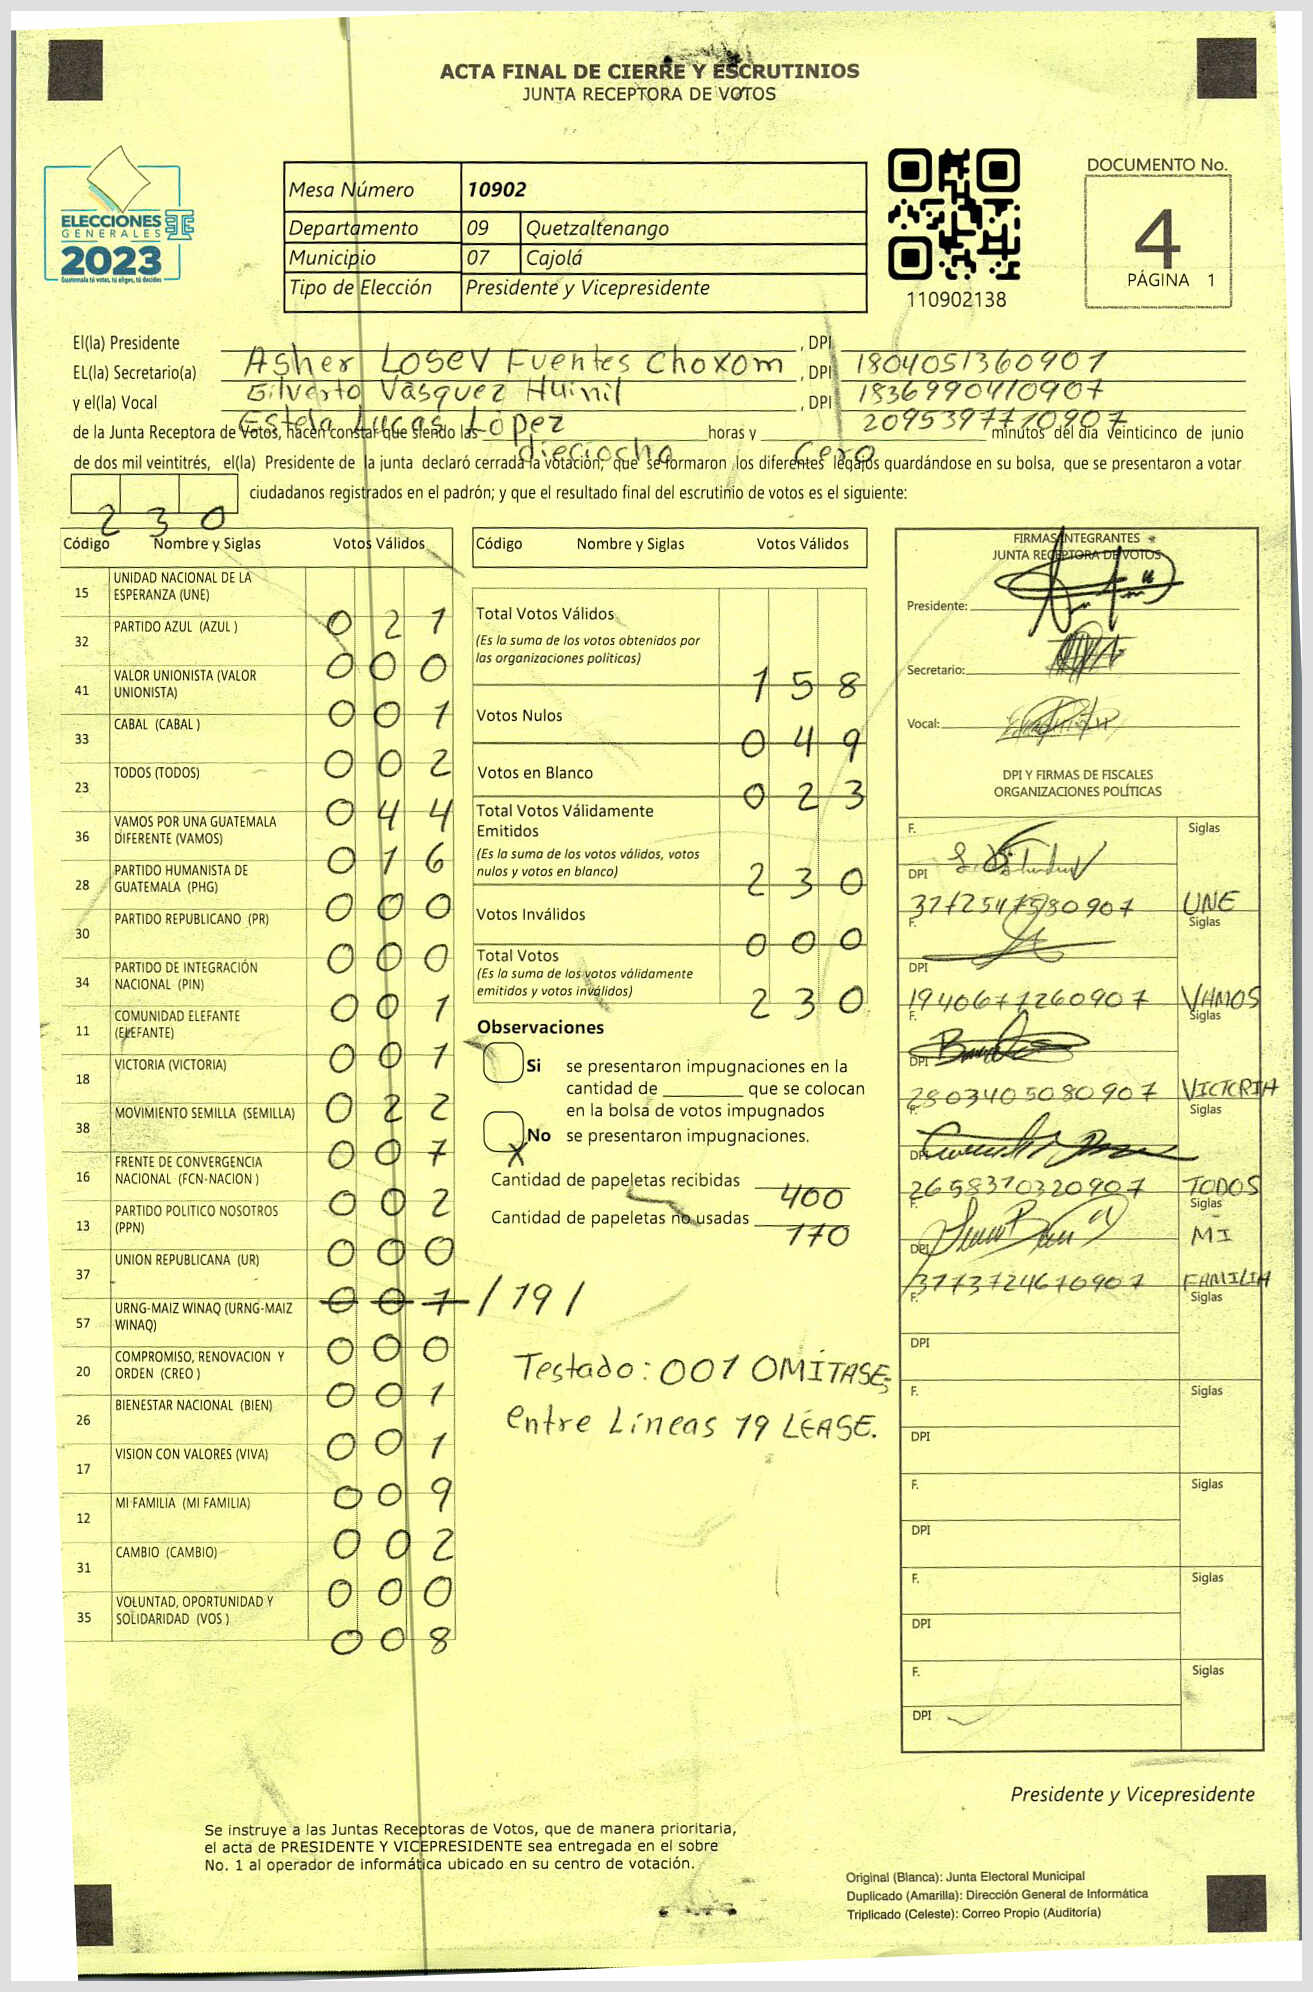 ACTA FINAL DE CIERRE Y ESCRUTINIOS
JUNTA RECEPTORA DE VOTOS
ELECCIONES
GENERALES
2023
Guatemala tú votas, tú eliges, tú decides
Mesa Número 10902
Departamento 09 Quetzaltenango
Municipio 07 Cajolá
Tipo de Elección Presidente y Vicepresidente
110902138
DOCUMENTO No.
4
PÁGINA 1
El(la) Presidente Asher Losev Fuentes Choxom , DPI 1804051360907
EL(la) Secretario(a) Gilverto Vásquez Huinil , DPI 1836990410907
y el(la) Vocal Estela Lucas López , DPI 2095397710907
de la Junta Receptora de Votos, hacen constar que siendo las dieciocho horas y cero minutos del día veinticinco de junio
de dos mil veintitrés, el(la) Presidente de la junta declaró cerrada la votación; que se formaron los diferentes legajos quardándose en su bolsa, que se presentaron a votar
230 ciudadanos registrados en el padrón; y que el resultado final del escrutinio de votos es el siguiente:
Código Nombre y Siglas Votos Válidos
15 UNIDAD NACIONAL DE LA ESPERANZA (UNE) 021
32 PARTIDO AZUL (AZUL ) 000
41 VALOR UNIONISTA (VALOR UNIONISTA) 001
33 CABAL (CABAL ) 002
23 TODOS (TODOS) 044
36 VAMOS POR UNA GUATEMALA DIFERENTE (VAMOS) 016
28 PARTIDO HUMANISTA DE GUATEMALA (PHG) 000
30 PARTIDO REPUBLICANO (PR) 000
34 PARTIDO DE INTEGRACIÓN NACIONAL (PIN) 001
11 COMUNIDAD ELEFANTE (ELEFANTE) 001
18 VICTORIA (VICTORIA) 022
38 MOVIMIENTO SEMILLA (SEMILLA) 007
16 FRENTE DE CONVERGENCIA NACIONAL (FCN-NACION ) 002
13 PARTIDO POLITICO NOSOTROS (PPN) 000
37 UNION REPUBLICANA (UR) 001 /19/
57 URNG-MAIZ WINAQ (URNG-MAIZ WINAQ) 000
20 COMPROMISO, RENOVACION Y ORDEN (CREO ) 001
26 BIENESTAR NACIONAL (BIEN) 001
17 VISION CON VALORES (VIVA) 009
12 MI FAMILIA (MI FAMILIA) 002
31 CAMBIO (CAMBIO) 000
35 VOLUNTAD, OPORTUNIDAD Y SOLIDARIDAD (VOS ) 008
Código Nombre y Siglas Votos Válidos
Total Votos Válidos 158
(Es la suma de los votos obtenidos por
las organizaciones políticas)
Votos Nulos 049
Votos en Blanco 023
Total Votos Válidamente
Emitidos
(Es la suma de los votos válidos, votos
nulos y votos en blanco) 230
Votos Inválidos 000
Total Votos
(Es la suma de los votos válidamente
emitidos y votos inválidos) 230
Observaciones
Si se presentaron impugnaciones en la
cantidad de que se colocan
en la bolsa de votos impugnados
X No se presentaron impugnaciones.
Cantidad de papeletas recibidas 400
Cantidad de papeletas no usadas 170
Testado: 001 OMÍTASE;
entre Líneas 19 LÉASE.
FIRMAS INTEGRANTES
JUNTA RECEPTORA DE VOTOS
Presidente:
Secretario:
Vocal:
DPI Y FIRMAS DE FISCALES
ORGANIZACIONES POLÍTICAS
F. Siglas
DPI 3772547580907 UNE
F. Siglas
DPI 1940677260907 VAMOS
F. Siglas
DPI 2803405080907 VICTORIA
F. Siglas
DPI 2658370320907 TODOS
F. Siglas
DPI 3773724670907 MI FAMILIA
F. Siglas
DPI
F. Siglas
DPI
F. Siglas
DPI
F. Siglas
DPI
F. Siglas
DPI
Presidente y Vicepresidente
Se instruye a las Juntas Receptoras de Votos, que de manera prioritaria,
el acta de PRESIDENTE Y VICEPRESIDENTE sea entregada en el sobre
No. 1 al operador de informática ubicado en su centro de votación.
Original (Blanca): Junta Electoral Municipal
Duplicado (Amarilla): Dirección General de Informática
Triplicado (Celeste): Correo Propio (Auditoría)